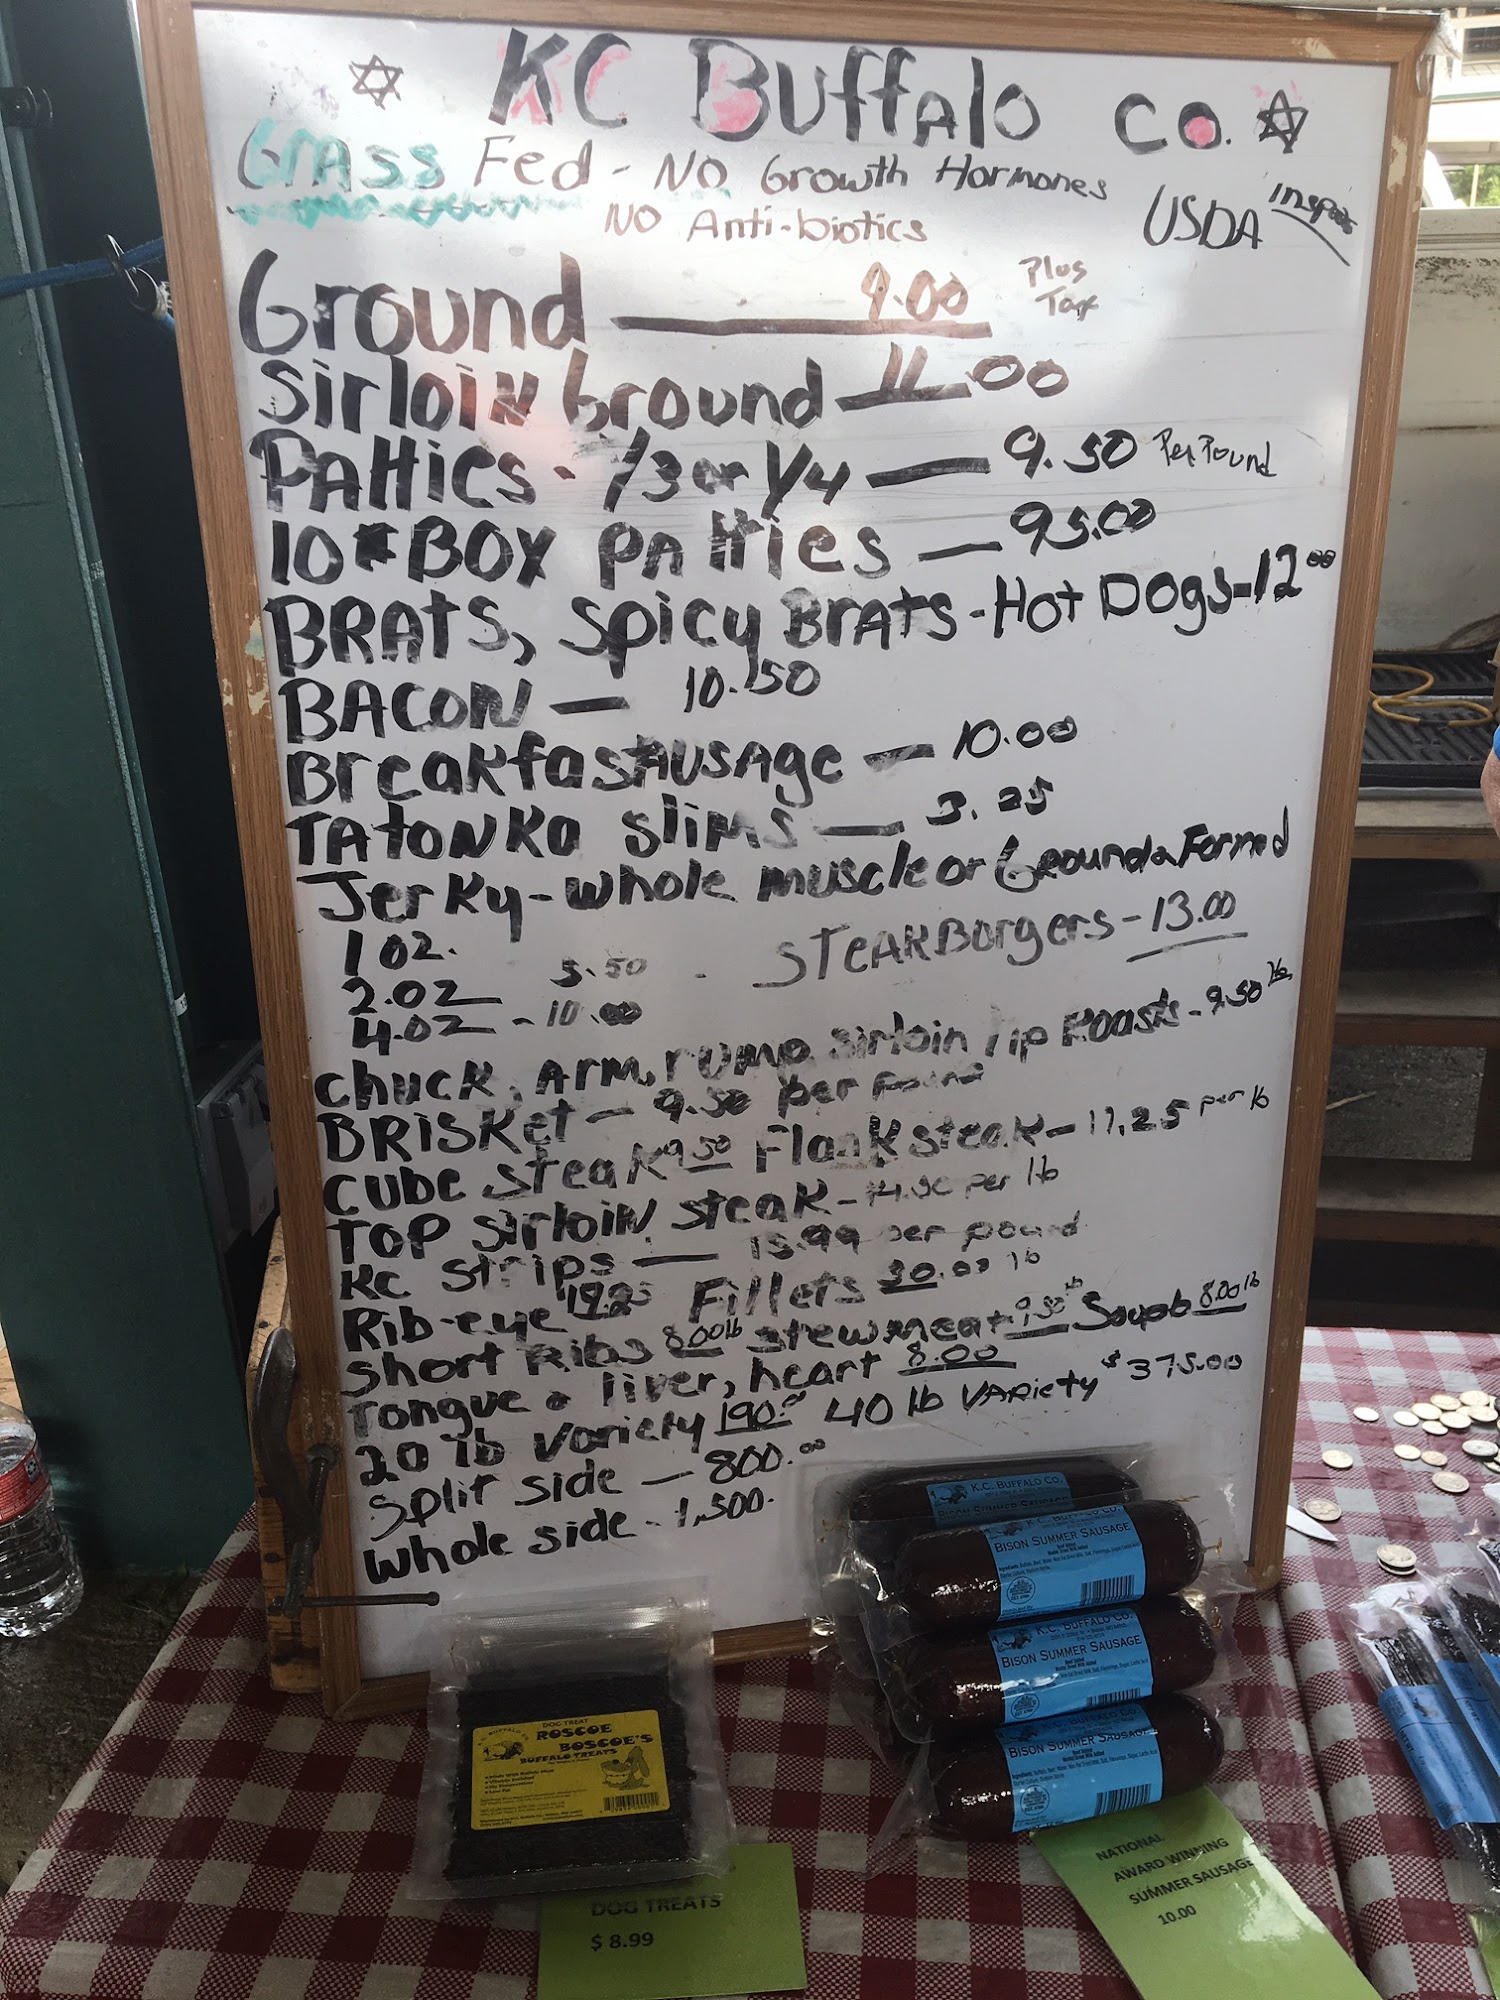 KC Buffalo Co.
Grass Fed - No Growth Hormones
No Anti-biotics
USDA
Ground 9.00 Plus Tax
Sirloin Ground 11.00
Patties - 1/3 or 1/4 — 9.50 Per Pound
10# Box Patties — 95.00
Brats, Spicy Brats - Hot Dogs - 12.00
Bacon — 10.50
Breakfastausage — 10.00
Tatonka Slims — 3.25
Jerky - whole muscle or Ground & Formed
1 oz.
2.oz 5.50 - Steak Borgers - 13.00
4.oz - 10.00
Chuck, Arm, rump, sirloin tip Roasts - 9.50 lb
Brisket — 9.50 per pound
Cube Steak 9.50 Flank steak - 11.25 per lb
Top Sirloin steak - per lb
KC Strips — 15.99 per pound
Rib-eye 19.25 Fillets 20.00 lb
Short Ribs 8.00 lb stew meat 9.50 lb Soup b 8.00 lb
Tongue & liver, heart 8.00
20 lb variety 190.00 40 lb variety $375.00
Split side — 800.00
Whole side - 1,500.
K.C. Buffalo Co.
Bison Summer Sausage
K.C. Buffalo Co.
Bison Summer Sausage
K.C. Buffalo Co.
Bison Summer Sausage
K.C. Buffalo Co.
Bison Summer Sausage
DOG TREAT
ROSCOE
BOSCOE'S
BUFFALO TREATS
DOG TREATS
$ 8.99
NATIONAL
AWARD WINNING
SUMMER SAUSAGE
10.00